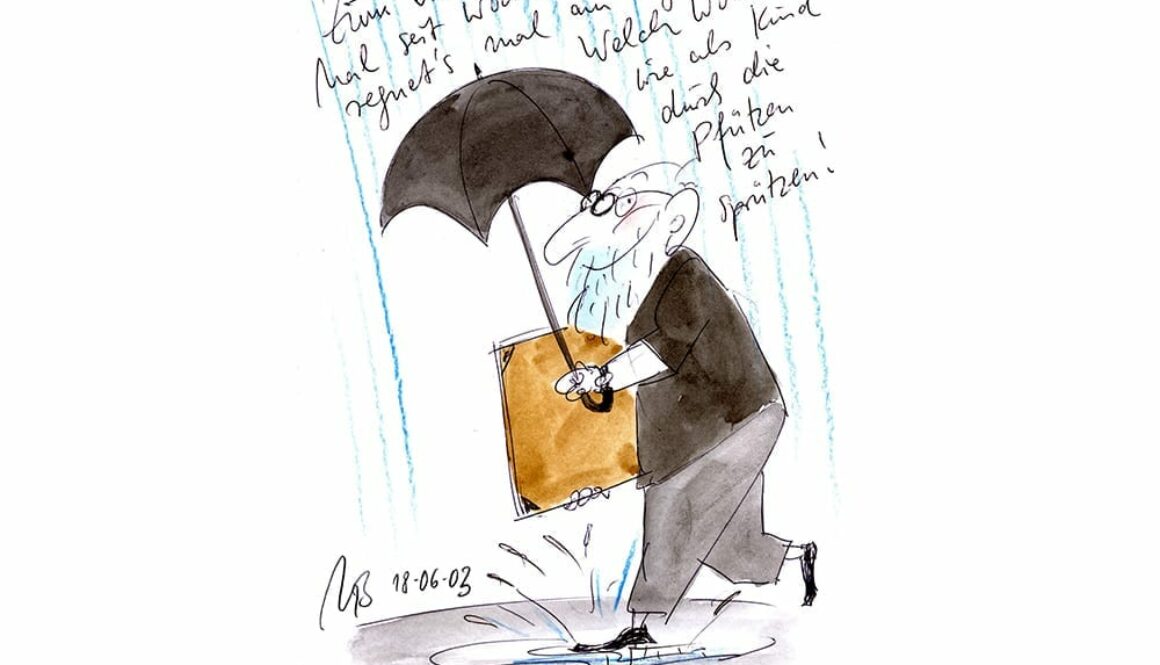 Zum
Mal seit
regnet's mal am
Welch
wie als Kind
durch die
Pfützen
zu
sprützen!
18-06-03